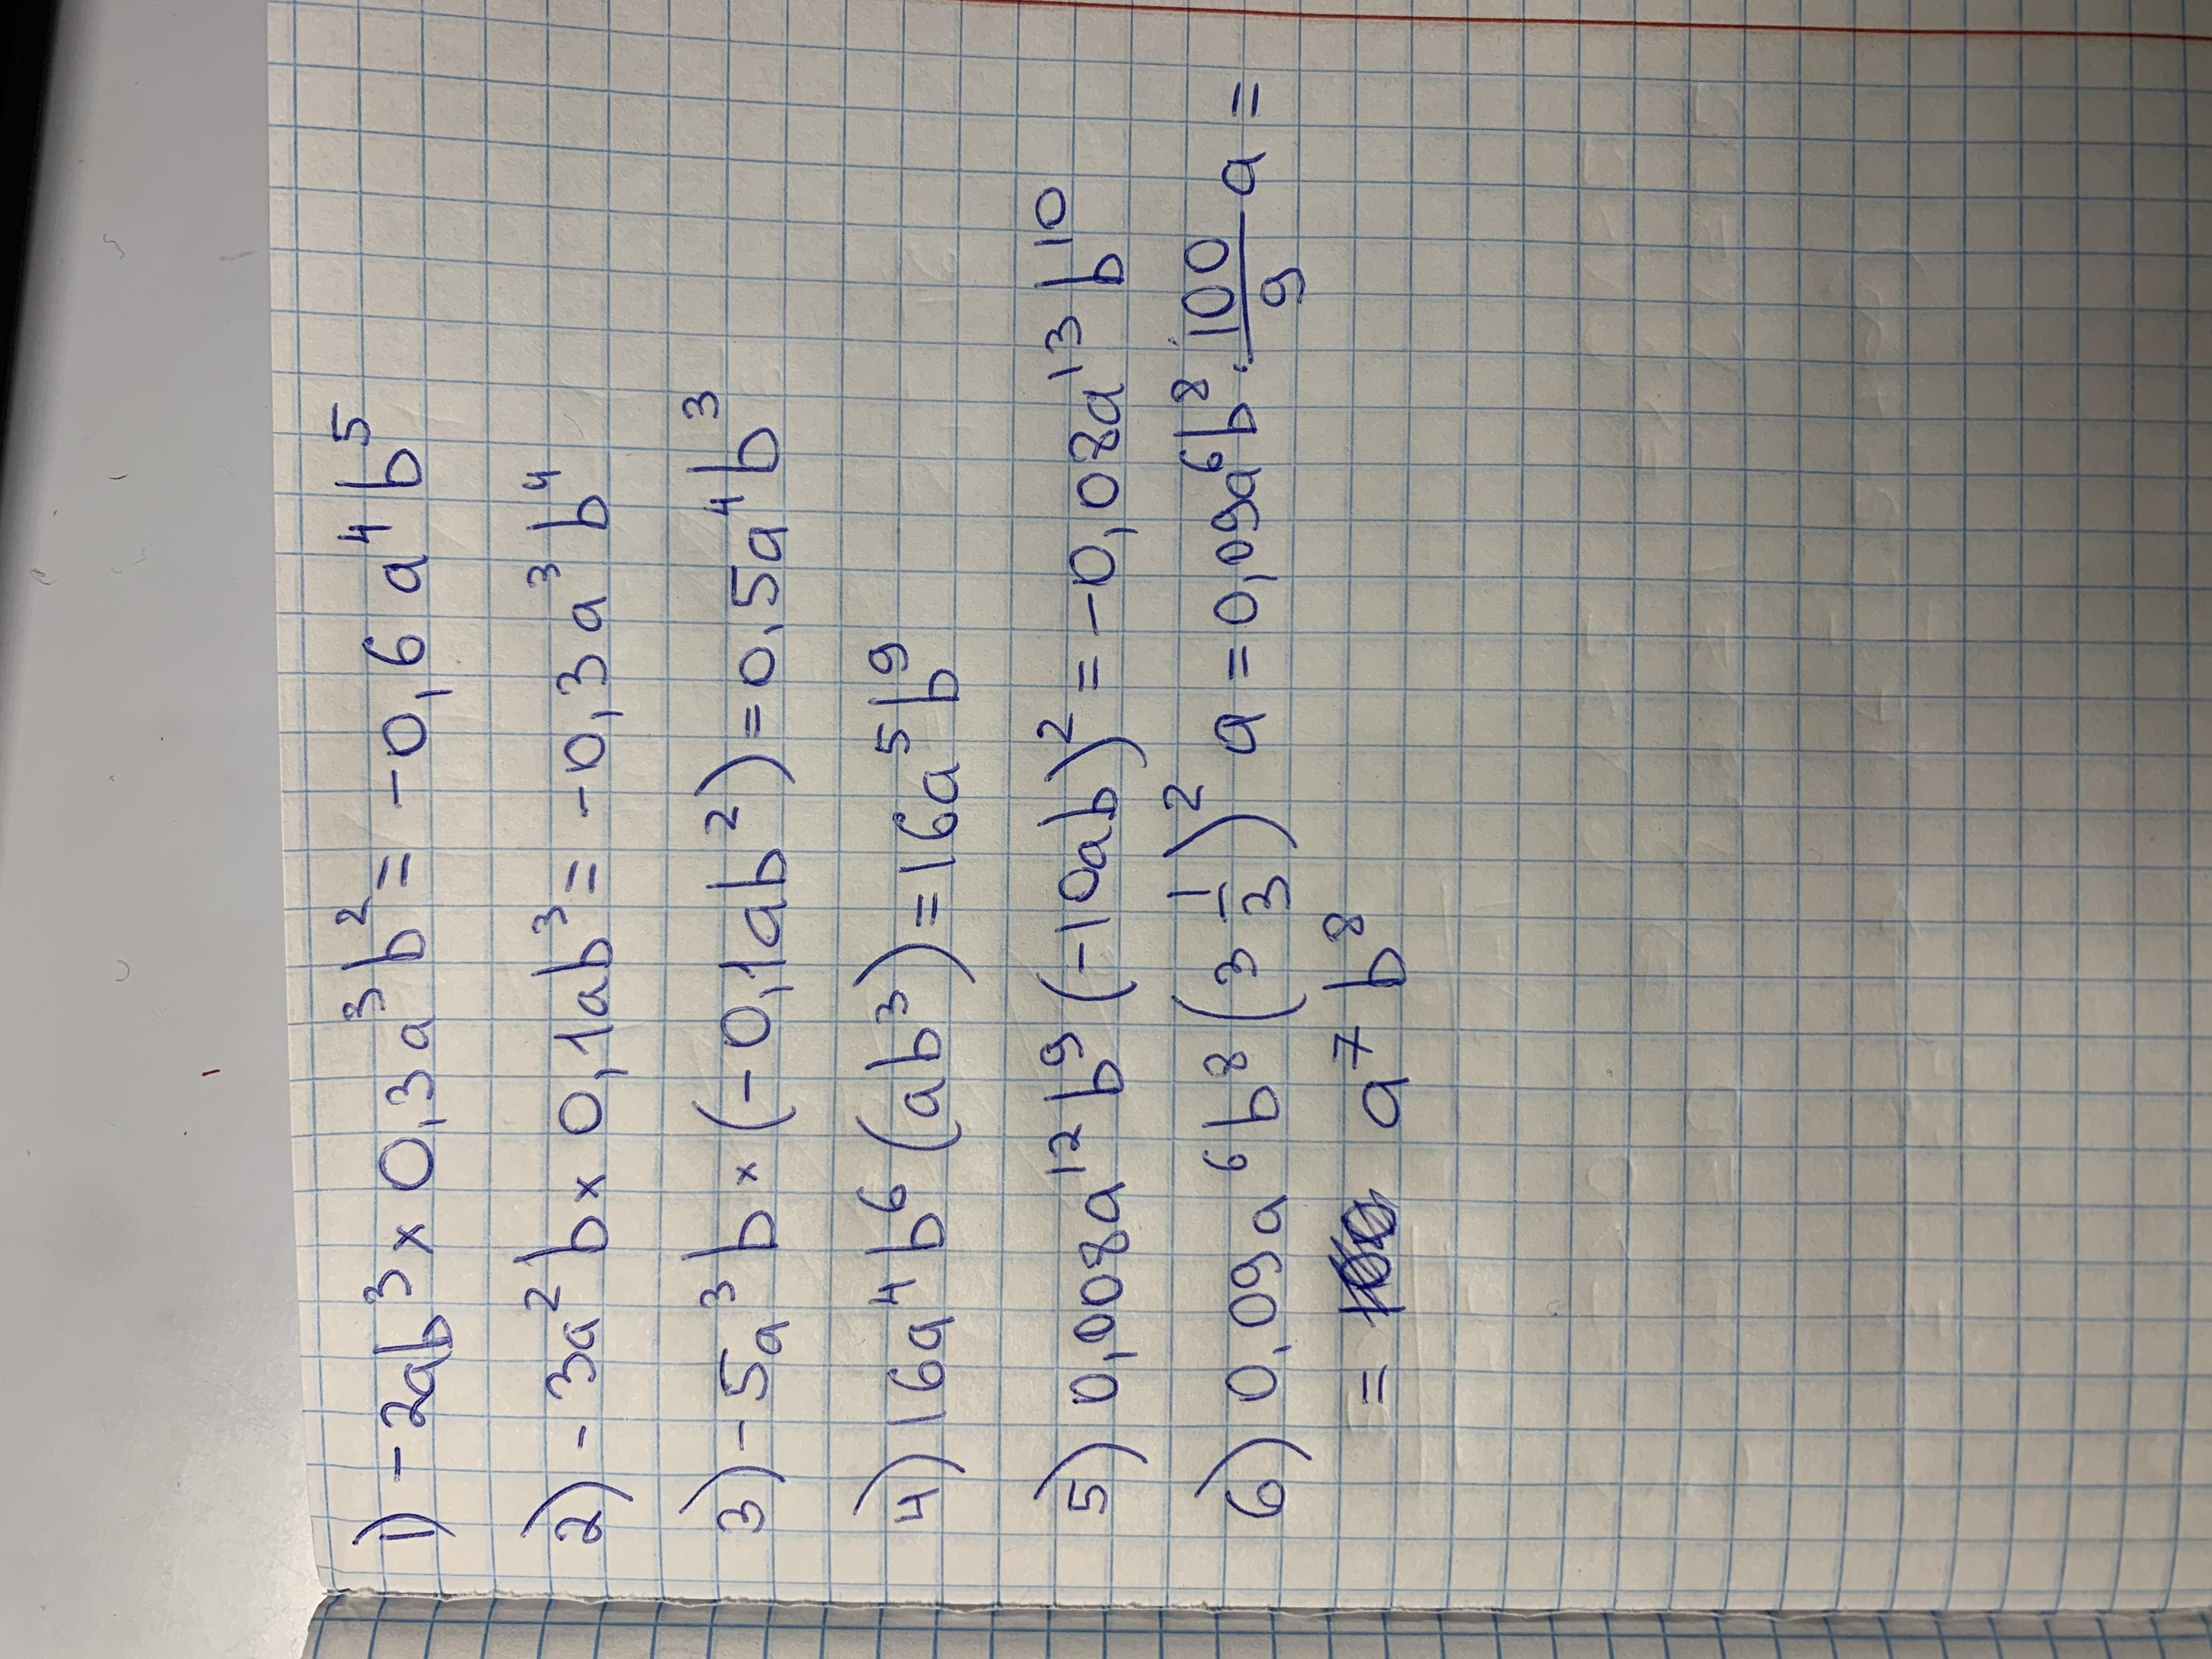 1) -2ab³ × 0,3a³b² = -0,6a⁴b⁵
2) -3a²b × 0,1ab³ = -0,3a³b⁴
3) -5a³b × (-0,1ab²) = 0,5a⁴b³
4) 16a⁴b⁶ (ab³) = 16a⁵b⁹
5) 0,008a¹²b⁹ (-10ab)² = -0,08a¹³b¹⁰
6) 0,09a⁶b⁸ (3 1/3)² a = 0,09a⁶b⁸ · 100/9 a =
= a⁷b⁸